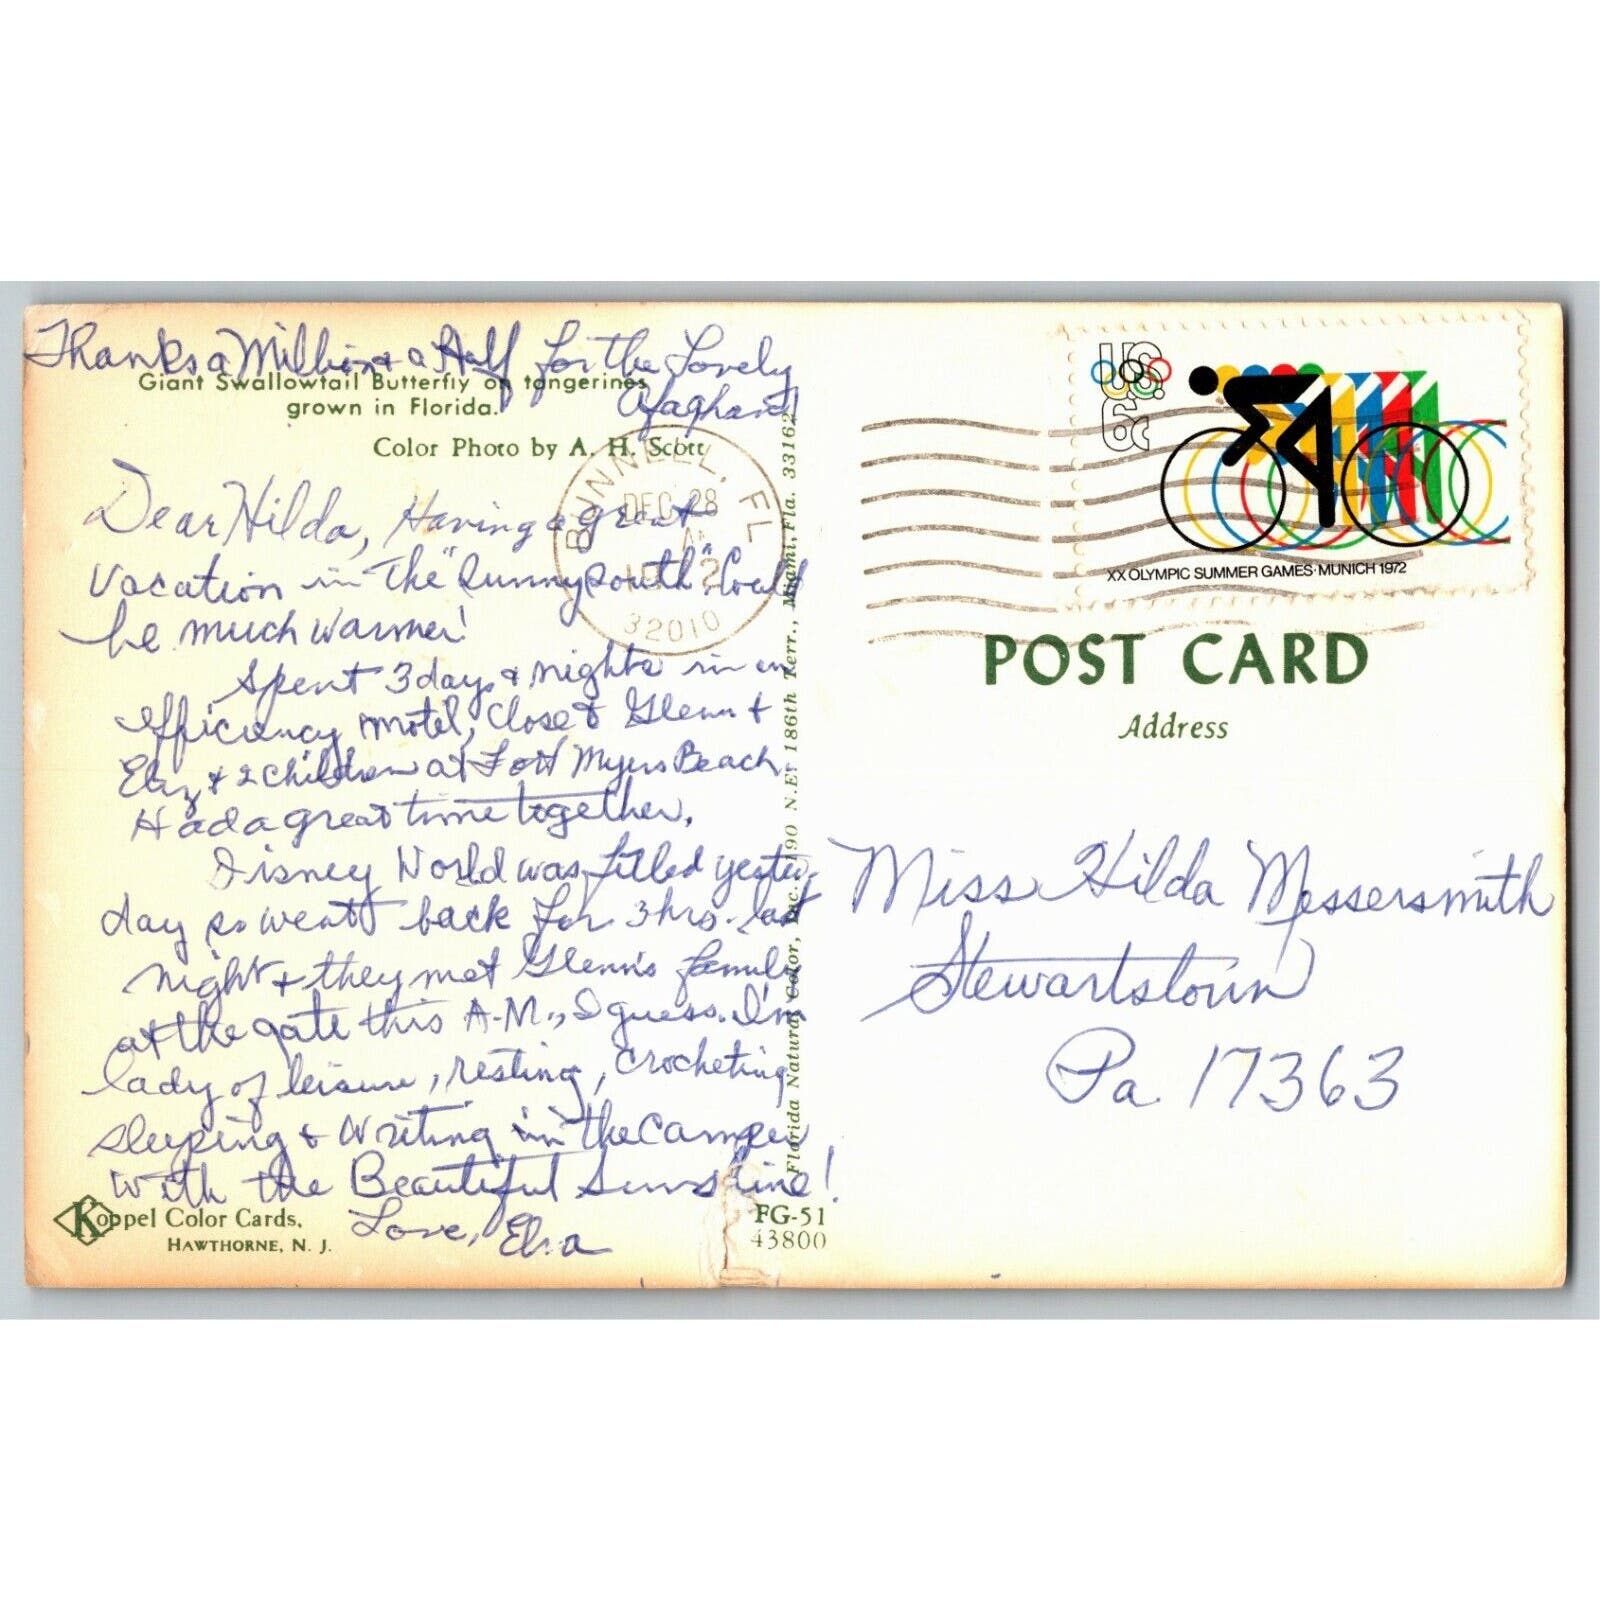 Thanks a Million & a Half for the Lovely
Afaghan!
Giant Swallowtail Butterfly on tangerines
grown in Florida.
Color Photo by A. H. Scott
Dear Hilda, Having a great
Vacation in the "Sunny South". Could
be much warmer!
Spent 3 days & nights in an
efficiency motel, close to Glenn &
Eliz & 2 children at Fort Myers Beach.
Had a great time together.
Disney World was filled yester-
day so went back for 3 hrs. last
night & they met Glenn's family
at the gate this A.M., I guess. I'm
lady of leisure, resting, crocheting
sleeping & writing in the camper
with the Beautiful Sunshine!
Love,
Koppel Color Cards,
HAWTHORNE, N. J.
BUNNELL, FL
DEC 28
32010
Florida Natural Color, Inc. 1190 N.E. 186th Terr., Miami, Fla. 33162
FG-51
43800
US
6c
XX OLYMPIC SUMMER GAMES·MUNICH 1972
POST CARD
Address
Miss Hilda Messersmith
Stewartstown
Pa. 17363